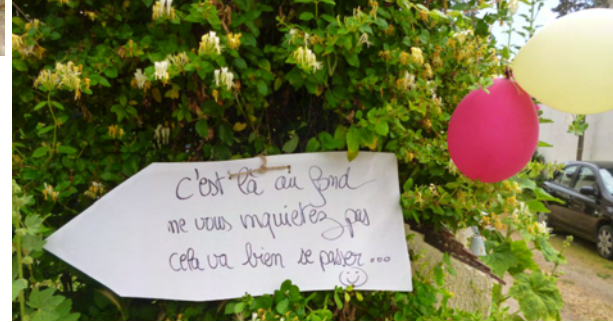 C'est là au fond
ne vous inquietez pas
cela va bien se passer...